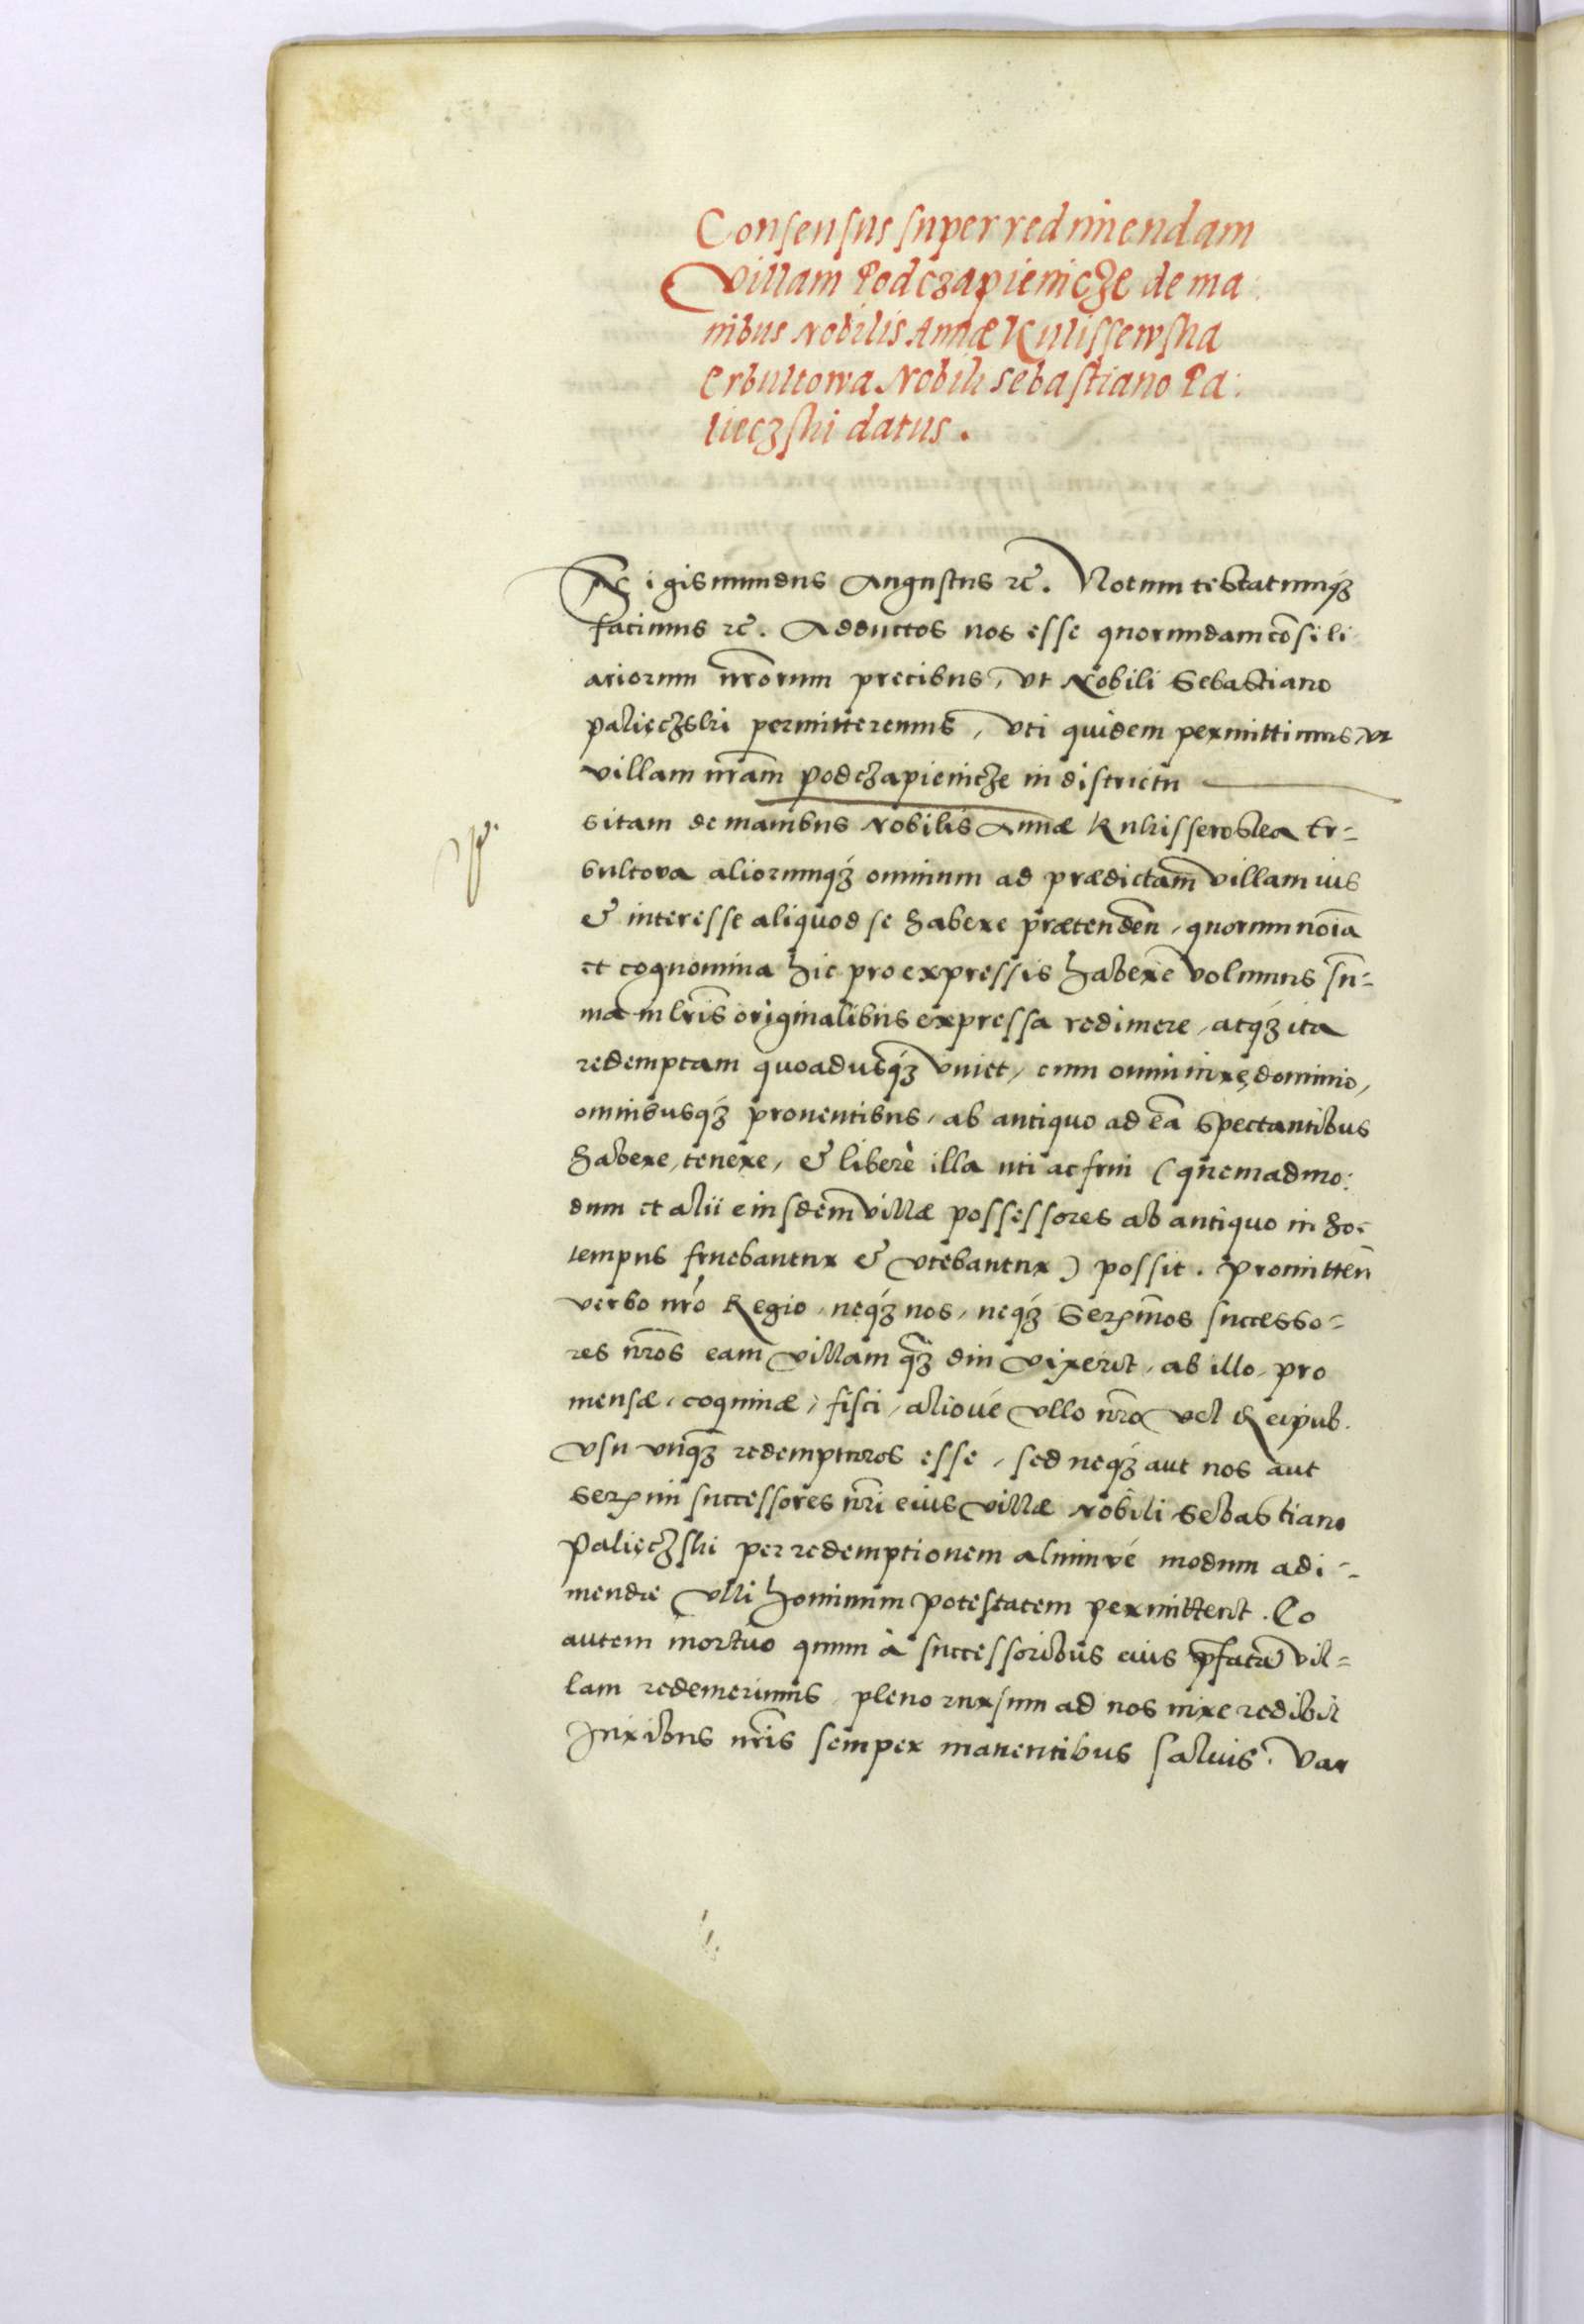 Consensus super redimendam
Villam Podczapienicze de ma:
nibus Nobilis Annæ Kulissewska
Erbultowa Nobili Sebastiano Pa:
lieczski datus.
Sigismundus Augustus rc̄. Notum testatumq́ꝫ
facimus rc̄. Adductos nos esse quorundam cōsili
ariorum nr̄orum precibus, vt Nobili Sebastiano
Palięczski permitteremus, vti quidem permittimus, vt
villam nr̄am Podczapienicze in districtu
sitam de manibus Nobilis Annæ Kulissewska Er=
bultova aliorumq́ꝫ omnium ad prædictam villam ius
& interesse aliquod se habere prætendeñ, quorum nōia
et cognomina hic pro expressis haberē volumus sū=
ma in lr̄is originalibus expressa redimere, atq́ꝫ ita
redemptam quoadusq́ꝫ viuet, cum omni iure, dominio,
omnibusq́ꝫ prouentibus, ab antiquo ad eā spectantibus
habere, tenere, & liberè illa uti ac frui (quemadmo:
dum et alii eiusdem villæ possessores ab antiquo in hoc
tempus fruebantur & vtebantur) possit. Promitteñ
verbo nr̄o Regio, neq́ꝫ nos, neq́ꝫ Serenmos successo=
res nr̄os eam villam q̄ꝫ diu vixerit, ab illo, pro
mensæ, coquinæ, fisci, alioué vllo nr̄o vel Reipub.
vsu unq̄ꝫ redempturos esse, sed neq́ꝫ aut nos aut
Serenmi successores nr̄i eius villæ Nobili Sebastiano
Palięczski per redemptionem aliumvé modum adi=
mendæ vlli hominum potestatem permittent. Eo
autem mortuo quum à successoribus eius p̄fatā vil=
lam redemerimus, pleno rursum ad nos iure redibit
Juribus nr̄is semper manentibus saluis. Var